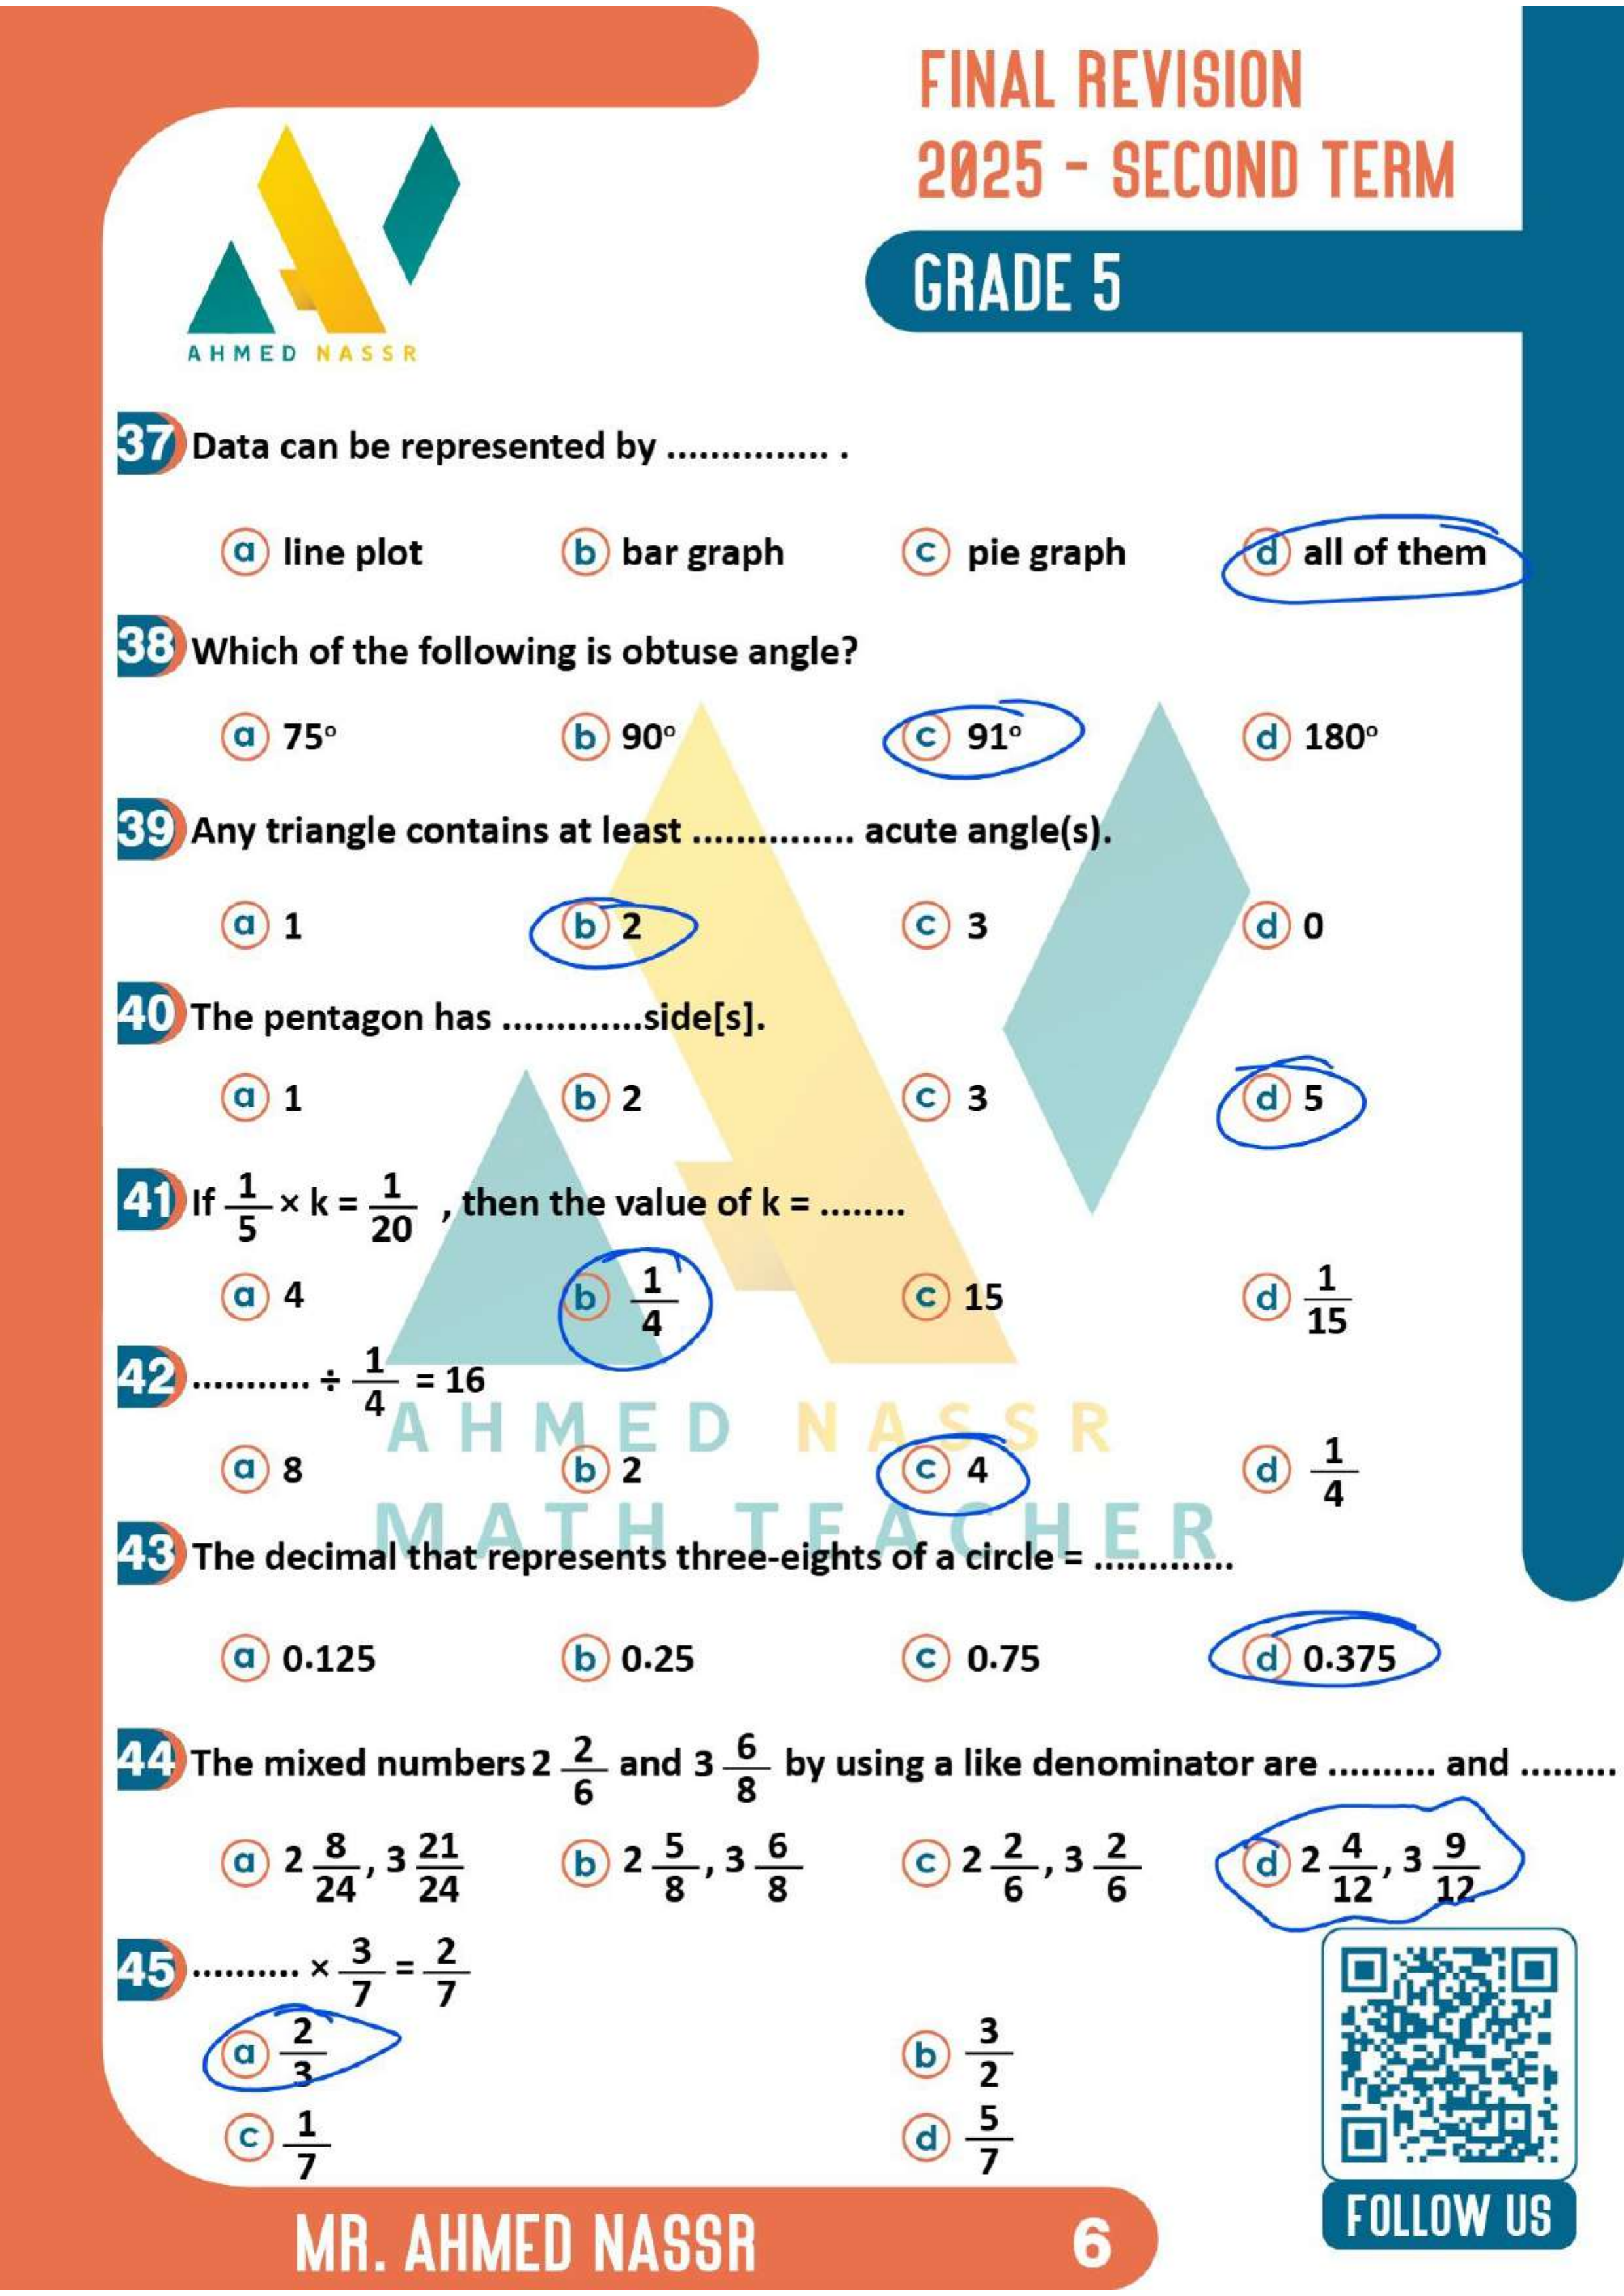 FINAL REVISION
2025 - SECOND TERM
GRADE 5
AHMED NASSR
37 Data can be represented by ............... .
a line plot b bar graph c pie graph d all of them
38 Which of the following is obtuse angle?
a 75° b 90° c 91° d 180°
39 Any triangle contains at least ............... acute angle(s).
a 1 b 2 c 3 d 0
40 The pentagon has .............side[s].
a 1 b 2 c 3 d 5
41 If 1/5 × k = 1/20 , then the value of k = ........
a 4 b 1/4 c 15 d 1/15
42 ........... ÷ 1/4 = 16
AHMED NASSR
a 8 b 2 c 4 d 1/4
MATH TEACHER
43 The decimal that represents three-eights of a circle = .............
a 0.125 b 0.25 c 0.75 d 0.375
44 The mixed numbers 2 2/6 and 3 6/8 by using a like denominator are .......... and .........
a 2 8/24 , 3 21/24 b 2 5/8 , 3 6/8 c 2 2/6 , 3 2/6 d 2 4/12 , 3 9/12
45 .......... × 3/7 = 2/7
a 2/3 b 3/2
c 1/7 d 5/7
MR. AHMED NASSR 6
FOLLOW US